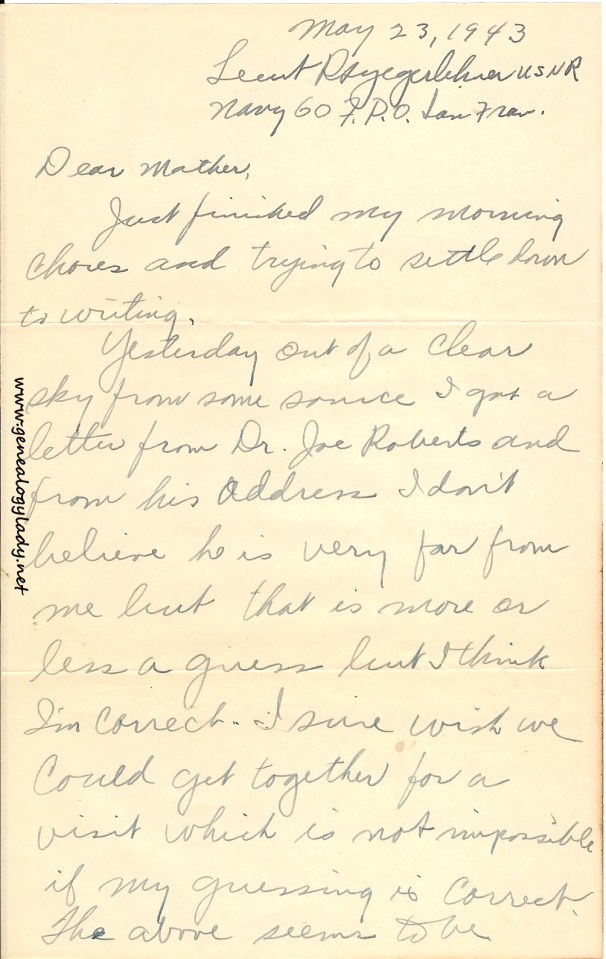 May 23, 1943
Lieut RSYegerlehner USNR
Navy 60 F.P.O. San Fran.
Dear Mother,
Just finished my morning
chores and trying to settle down
to writing.
Yesterday out of a clear
sky from some source I got a
letter from Dr. Joe Roberts and
from his address I don't
believe he is very far from
me but that is more or
less a guess but I think
I'm correct. I sure wish we
could get together for a
visit which is not impossible
if my guessing is correct.
The above seems to be
www.genealogylady.net